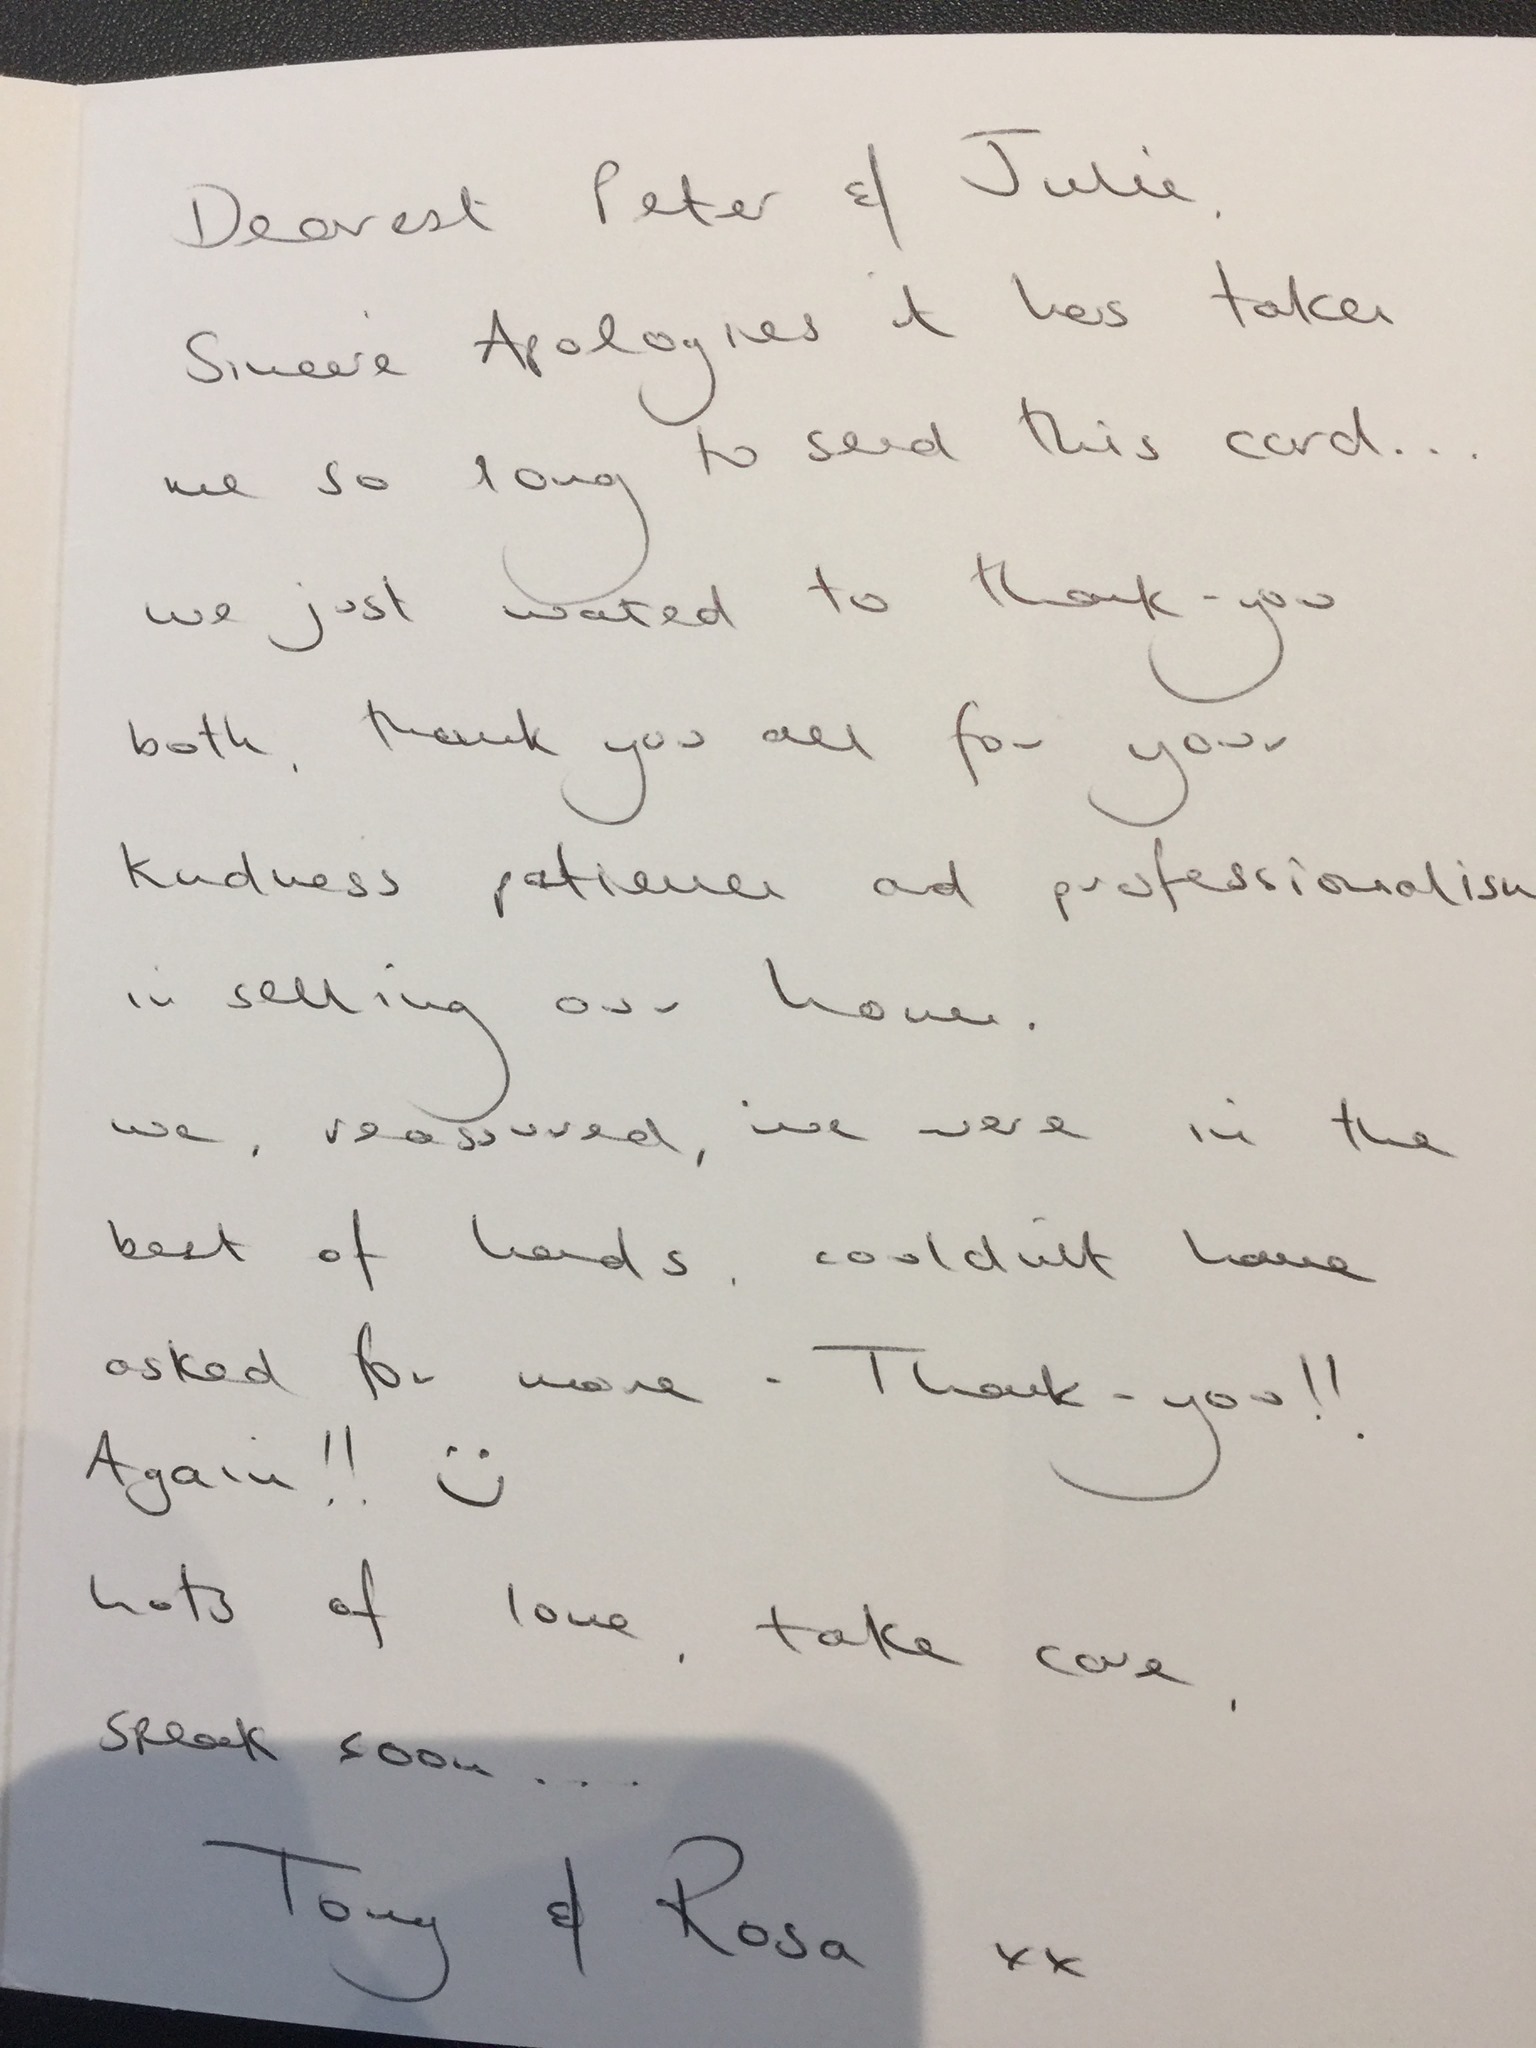 Dearest Peter & Julie,
Sincere Apologies it has taken
me so long to send this card...
we just wated to thank-you
both, thank you all for your
kindness patience and professionalism
in selling our home.
we, reassured, we were in the
best of hands, couldn't have
asked for more - Thank-you!!
Again!! :)
Lots of love, take care,
speak soon....
Tony & Rosa xx